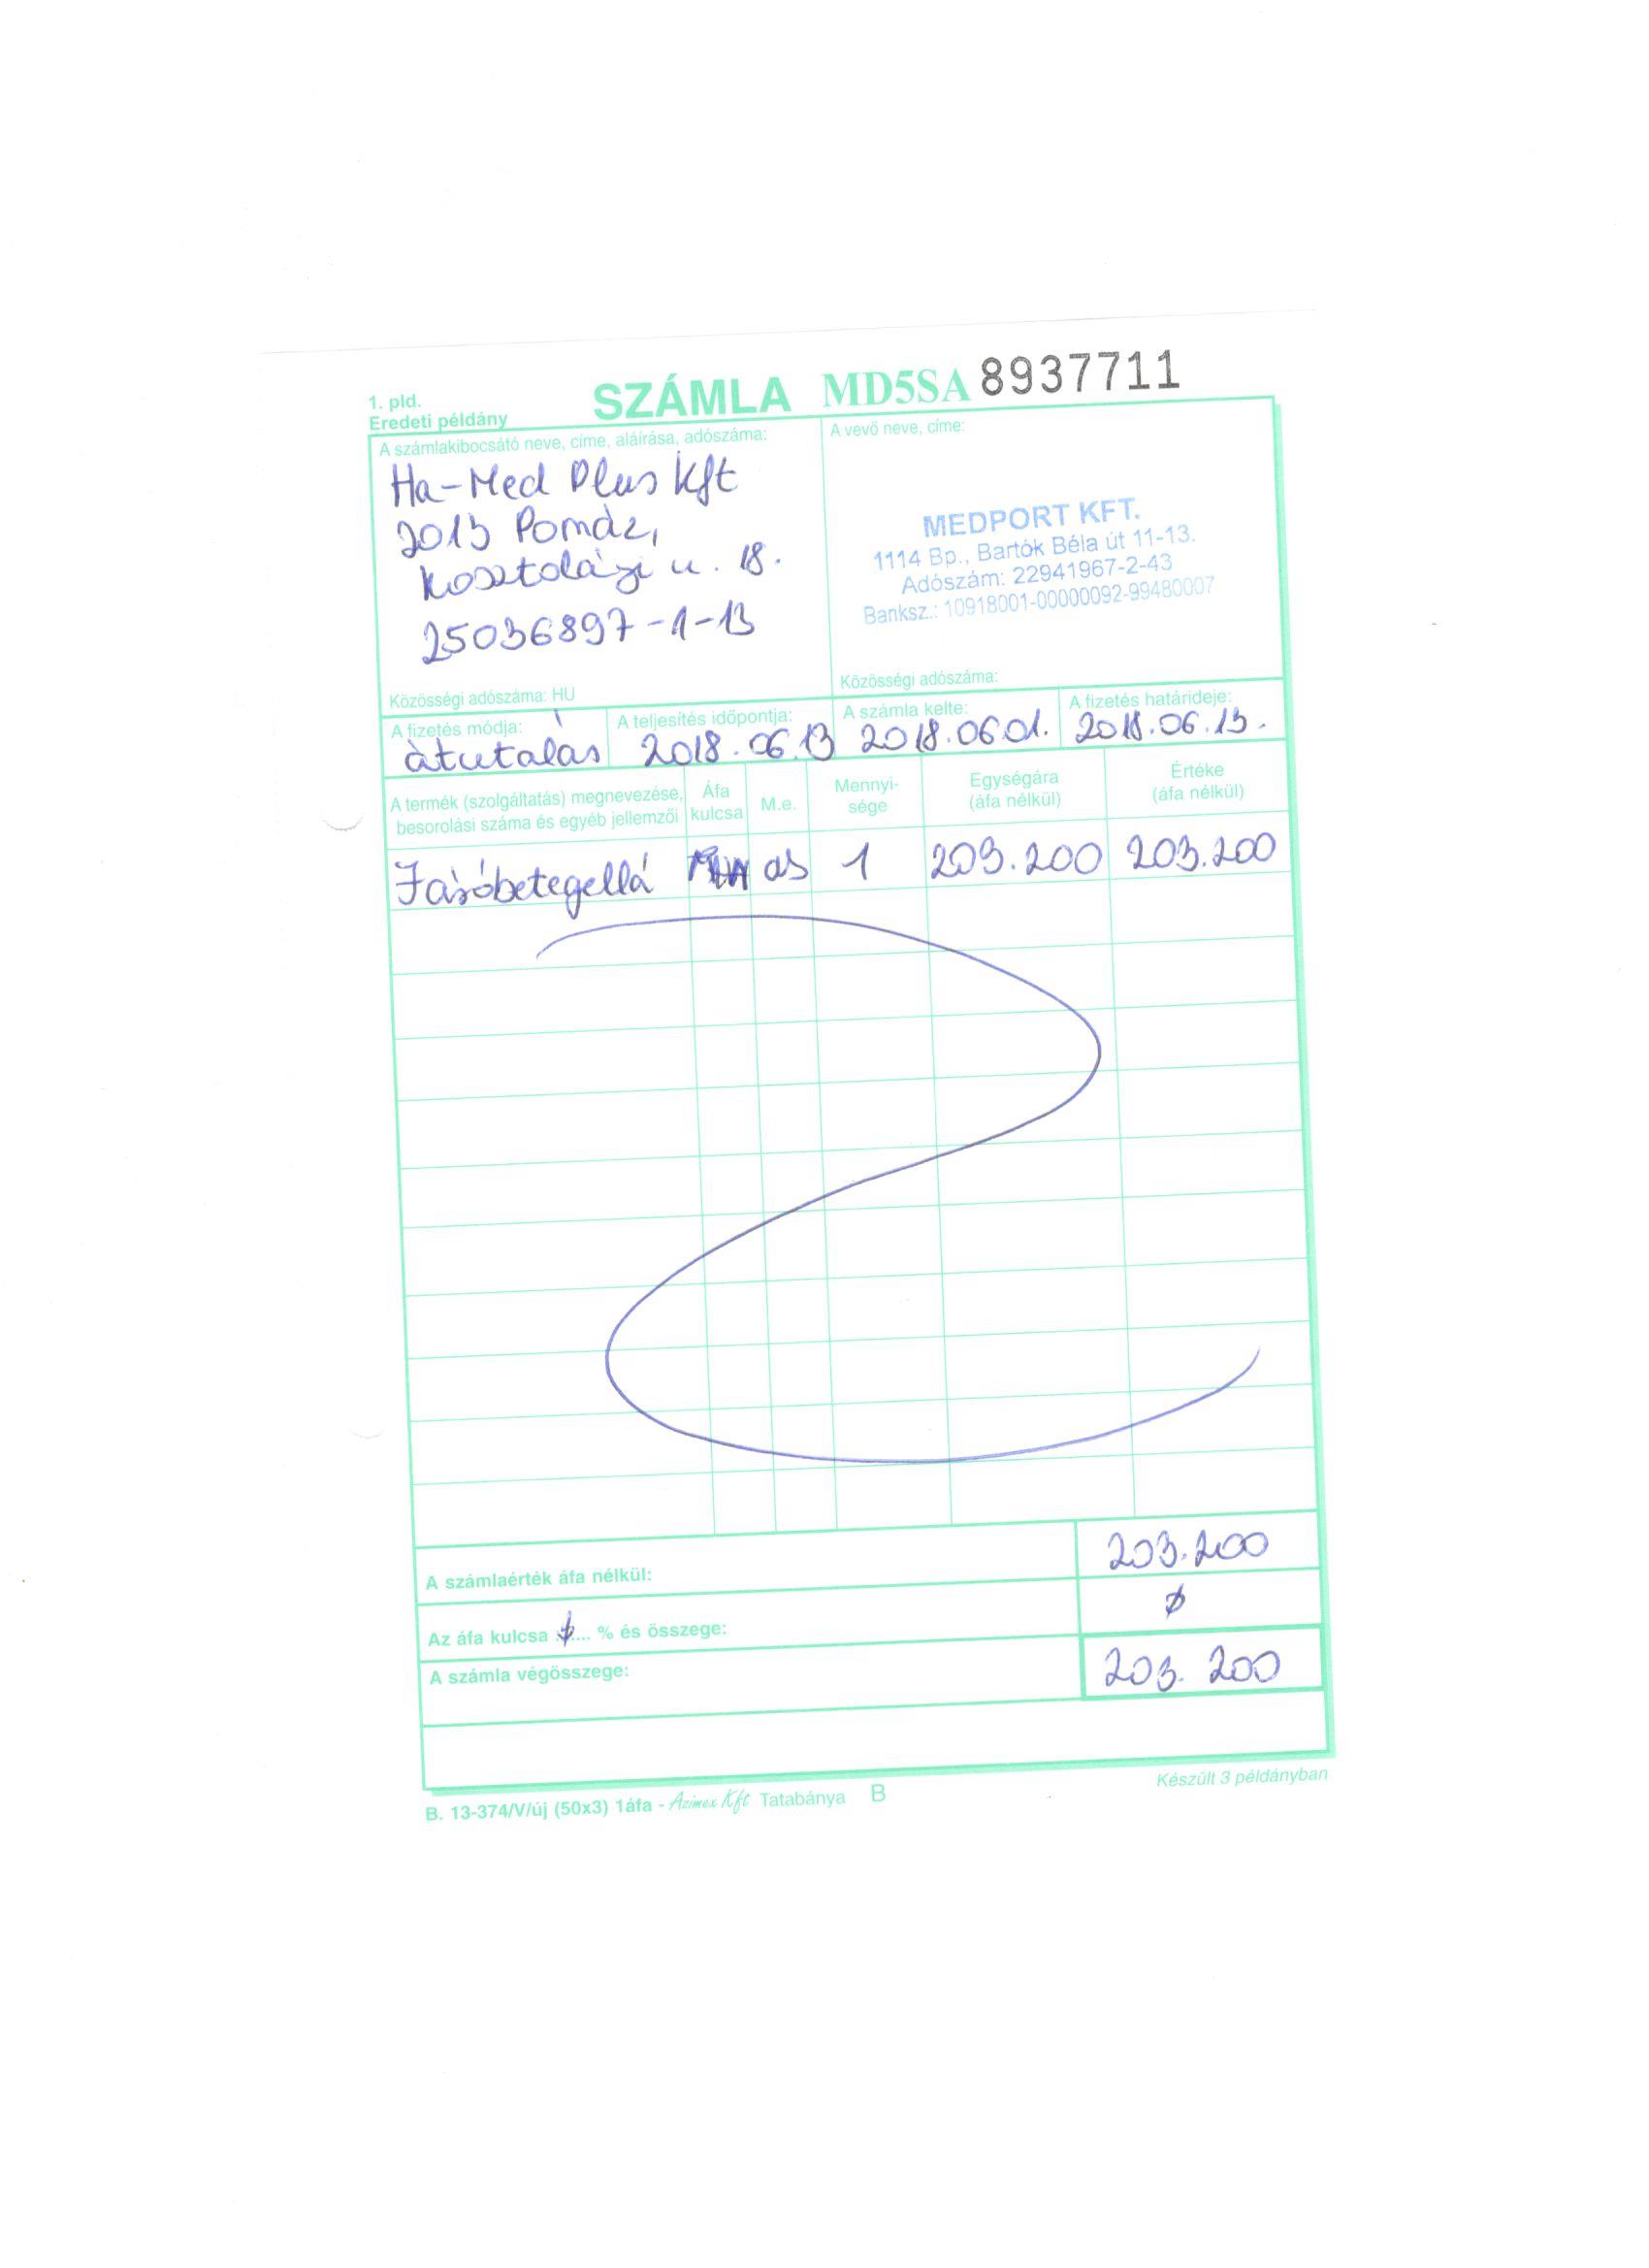 1. pld.
Eredeti példány
SZÁMLA MD5SA 8937711
A számlakibocsátó neve, címe, aláírása, adószáma:
Ha-Med Plus Kft
2013 Pomáz,
Kosztolányi u. 18.
25036897-1-13
Közösségi adószáma: HU
A vevő neve, címe:
MEDPORT KFT.
1114 Bp., Bartók Béla út 11-13.
Adószám: 22941967-2-43
Banksz.: 10918001-00000092-99480007
Közösségi adószáma:
A fizetés módja: A teljesítés időpontja: A számla kelte: A fizetés határideje:
átutalás 2018.06.13 2018.06.01. 2018.06.13.
A termék (szolgáltatás) megnevezése, besorolási száma és egyéb jellemzői Áfa kulcsa M.e. Mennyi-sége Egységára (áfa nélkül) Értéke (áfa nélkül)
Járóbetegellá 1 203.200 203.200
A számlaérték áfa nélkül: 203.200
Az áfa kulcsa ..... % és összege: ø
A számla végösszege: 203.200
B. 13-374/V/új (50x3) 1áfa - Azimex Kft Tatabánya B
Készült 3 példányban